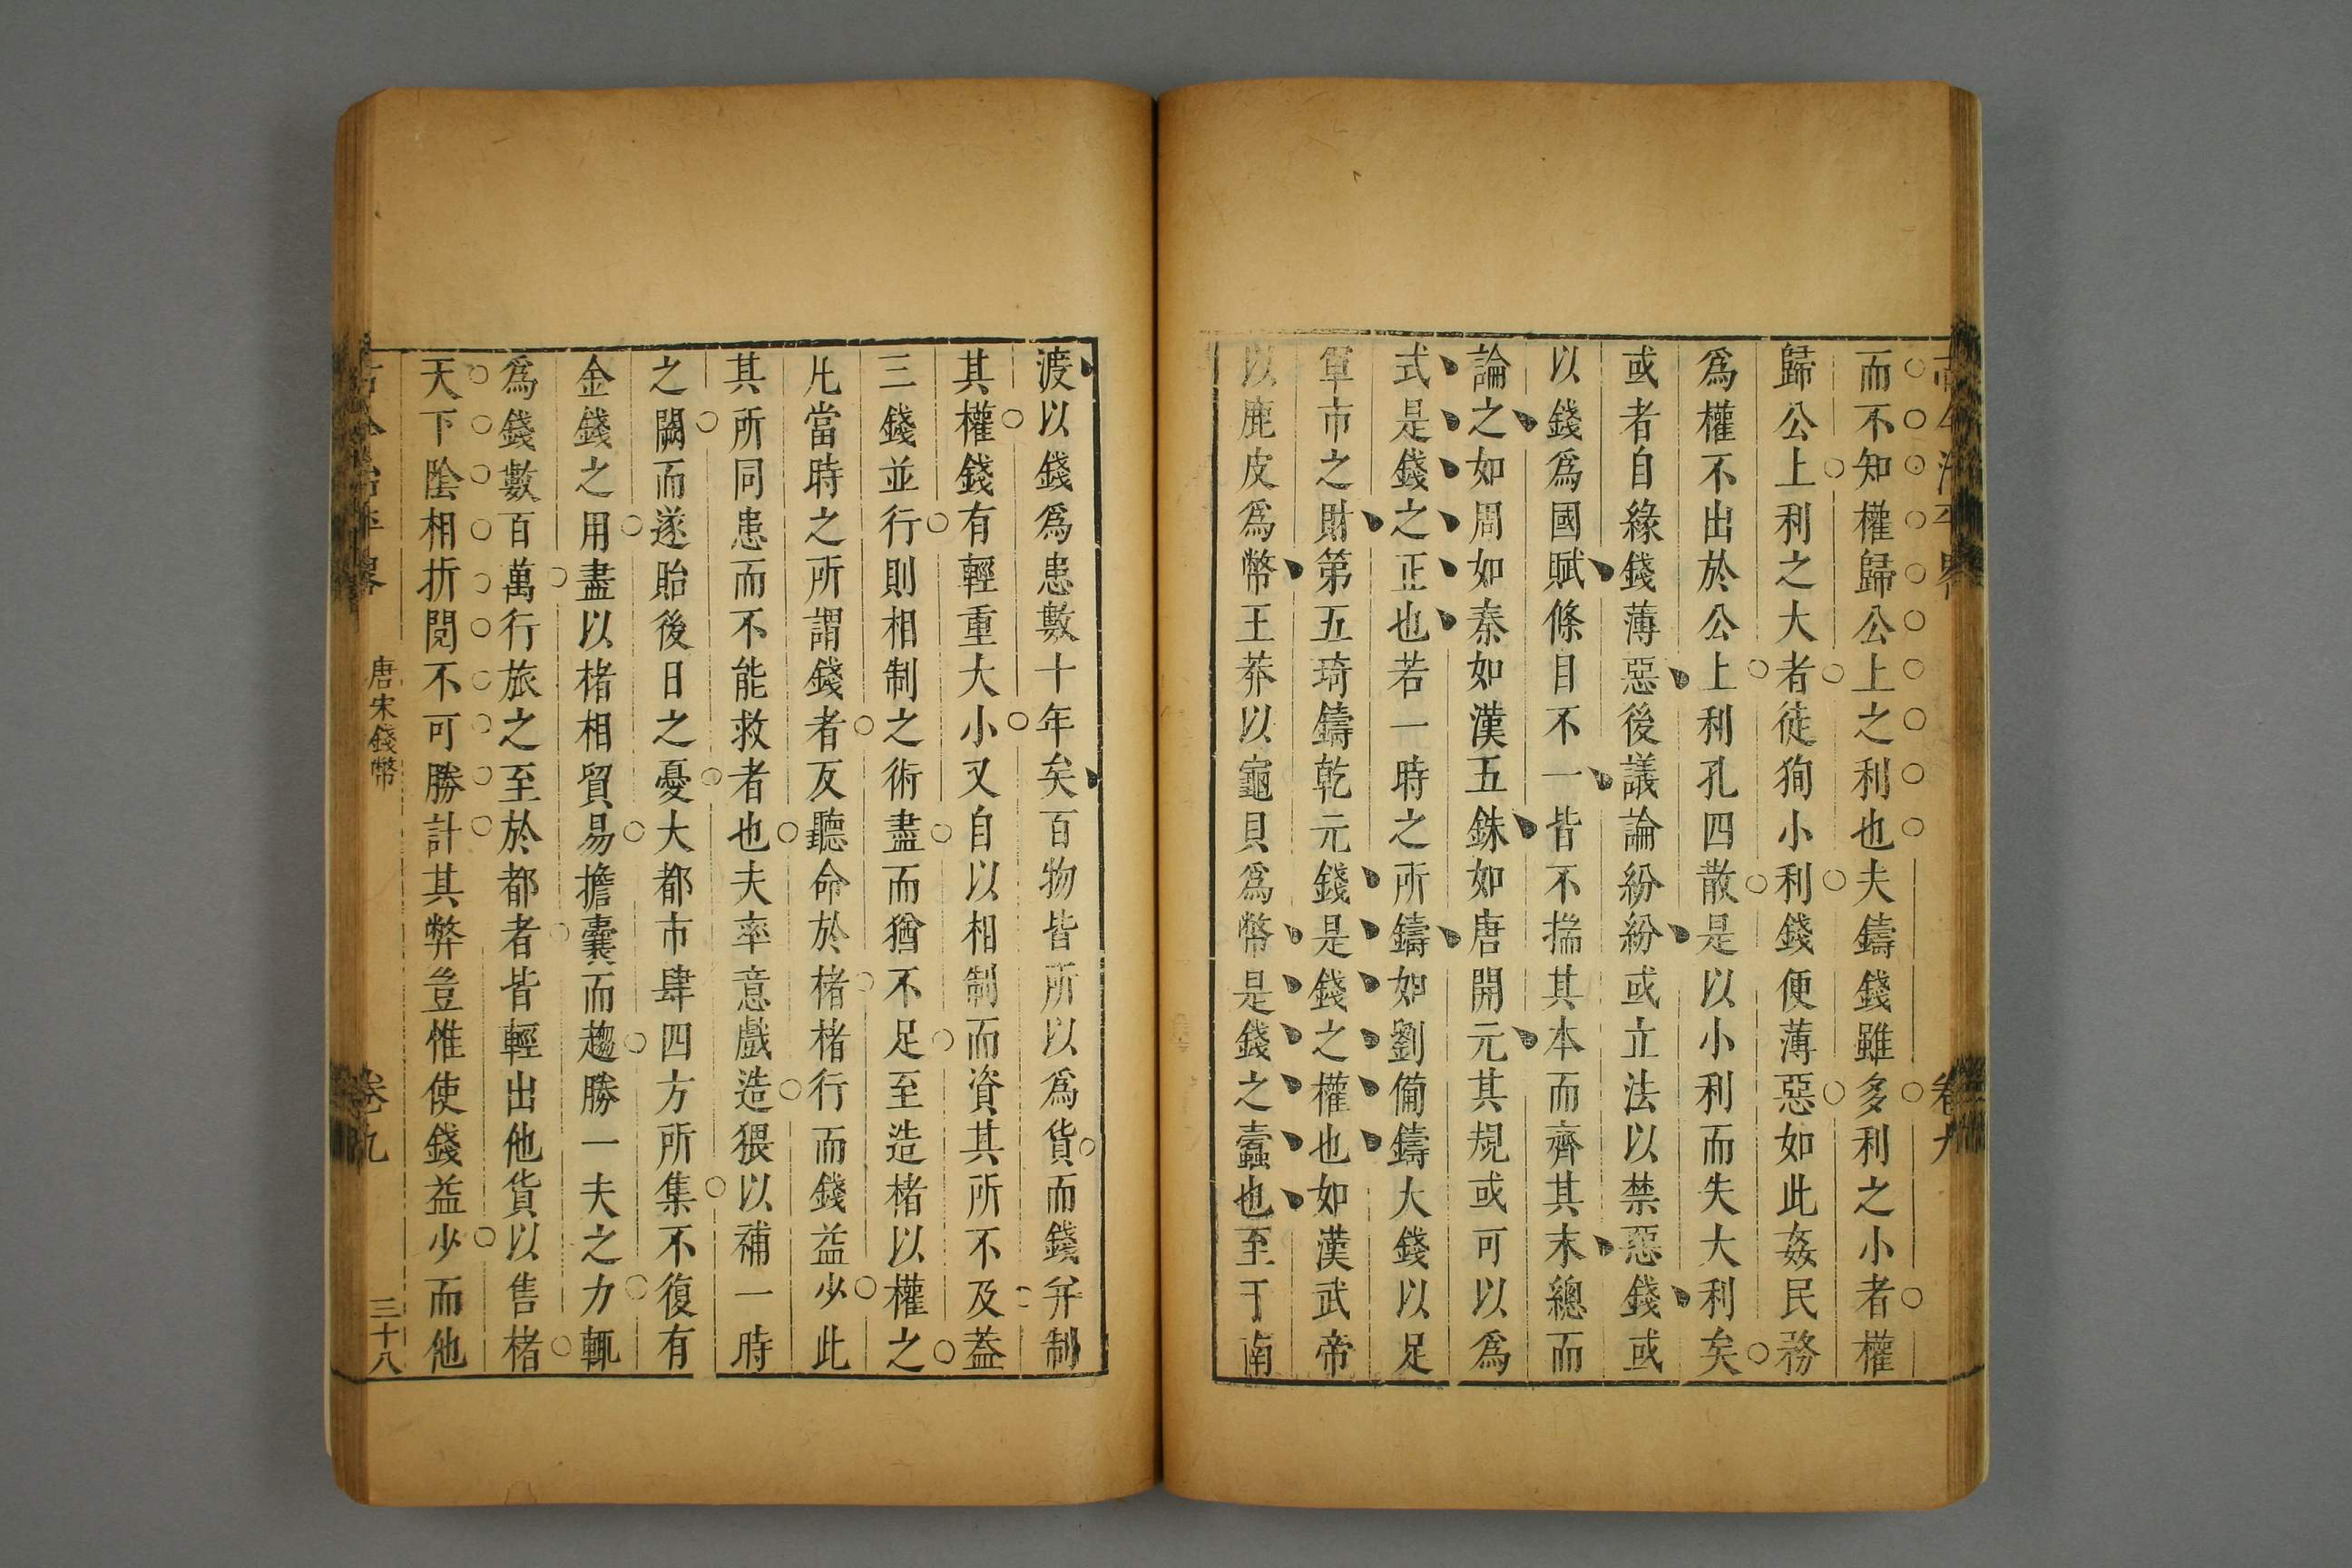 而不知權歸公上之利也夫鑄錢雖多利之小者權
歸公上利之大者徒狥小利錢便薄惡如此姦民務
爲權不出於公上利孔四散是以小利而失大利矣
或者自緣錢薄惡後議論紛紛或立法以禁惡錢或
以錢爲國賦條目不一皆不揣其本而齊其末總而
論之如周如秦如漢五銖如唐開元其規或可以爲
式是錢之正也若一時之所鑄如劉備鑄大錢以足
軍市之財第五琦鑄乾元錢是錢之權也如漢武帝
以鹿皮爲幣王莽以龜貝爲幣是錢之蠹也至于南
渡以錢爲患數十年矣百物皆所以爲貨而錢并制
其權錢有輕重大小又自以相制而資其所不及葢
三錢並行則相制之術盡而猶不足至造楮以權之
凡當時之所謂錢者反聽命於楮楮行而錢益少此
其所同患而不能救者也夫率意戲造猥以補一時
之闕而遂貽後日之憂大都市肆四方所集不復有
金錢之用盡以楮相貿易擔囊而趨勝一夫之力輒
爲錢數百萬行旅之至於都者皆輕出他貨以售楮
天下陰相折閱不可勝計其弊豈惟使錢益少而他
唐宋錢幣
卷九
三十八